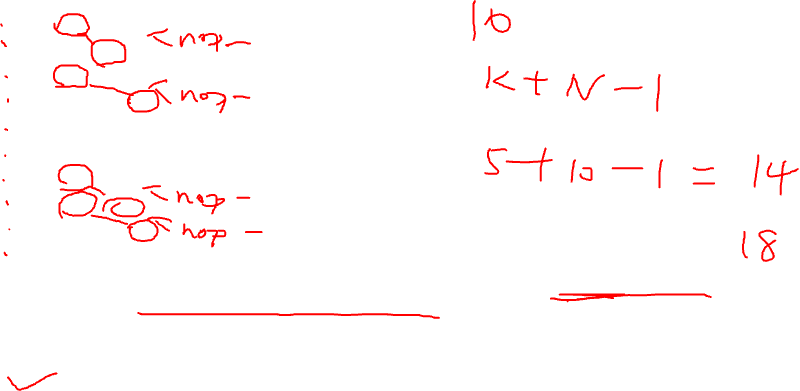 <nop-
<nop-
<nop-
<nop-
10
K+N-1
5+10-1=14
18